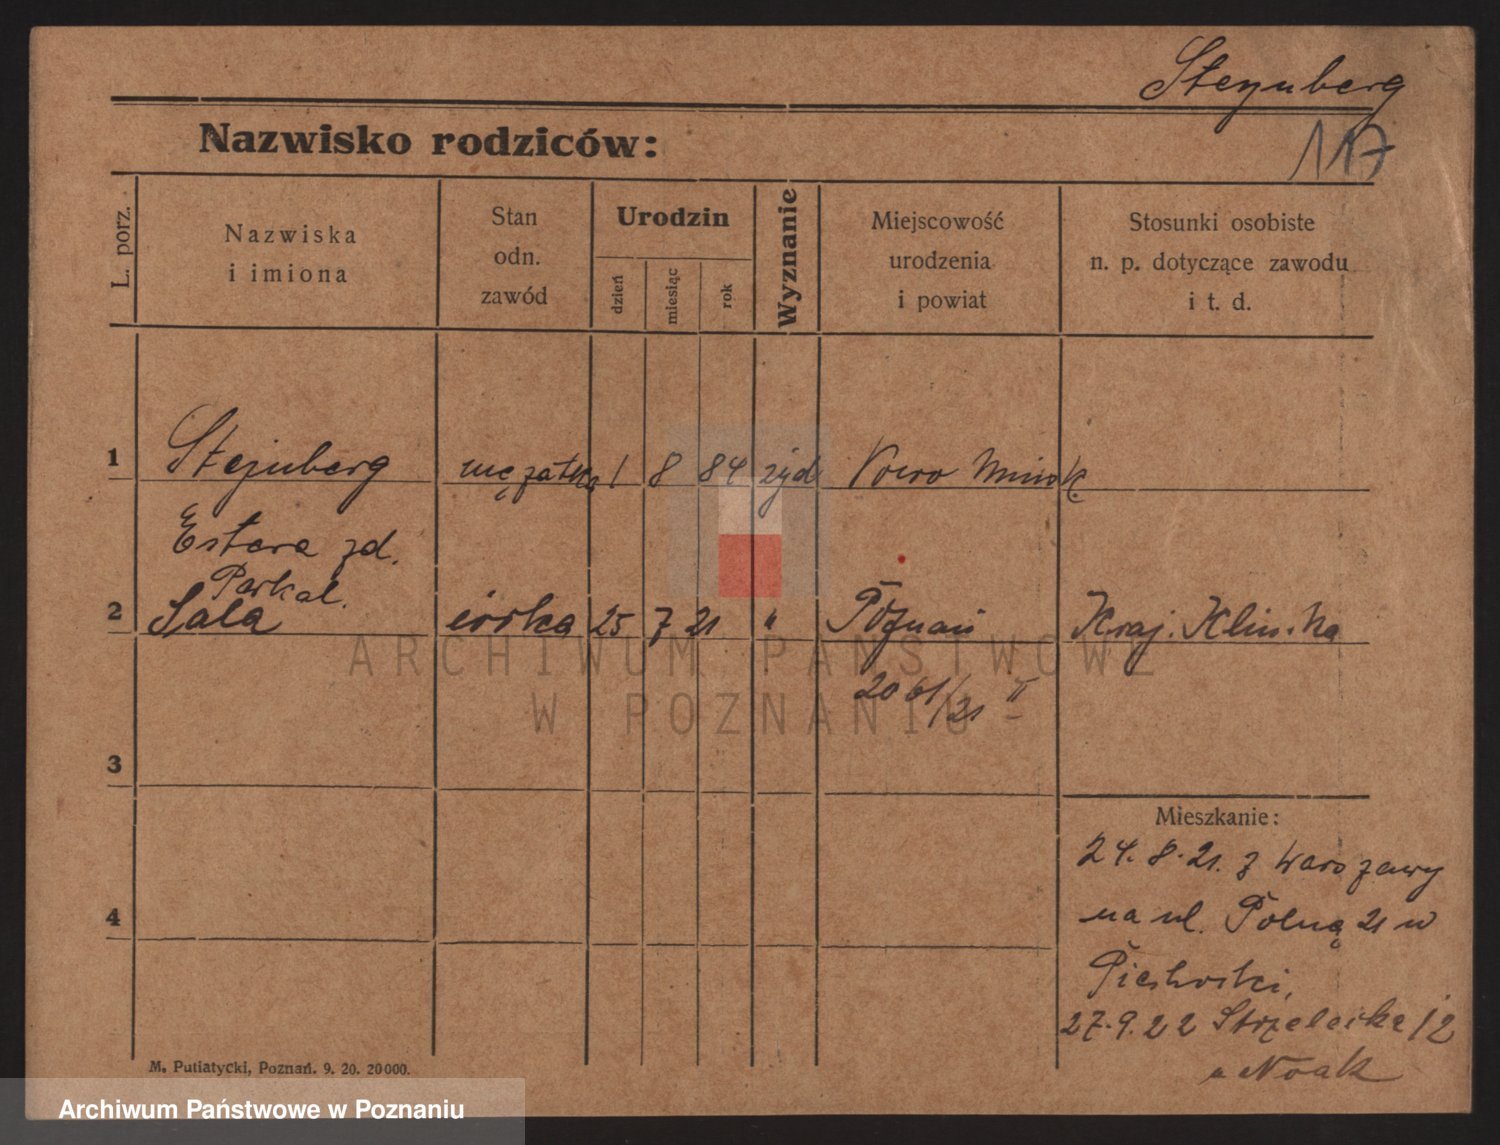 Steynberg
117
Nazwisko rodziców:
L. porz.
Nazwiska
i imiona
Stan
odn.
zawód
Urodzin
dzień
miesiąc
rok
Wyznanie
Miejscowość
urodzenia
i powiat
Stosunki osobiste
n. p. dotyczące zawodu
i t. d.
1 Stejnberg mężatka 1 8 84 żyd Nowo Minsk
Estera zd.
Parkal.
2 Sala córka 25 7 21 " Poznań Kraj. Klin.
2061/21 II
3
Mieszkanie:
24. 8. 21. z Warszawy
na ul. Polną 21 w
27. 9. 22 Strzelecka 12
u Noak
4
M. Putiatycki, Poznań. 9. 20. 20000.
ARCHIWUM PAŃSTWOWE
W POZNANIU
Archiwum Państwowe w Poznaniu